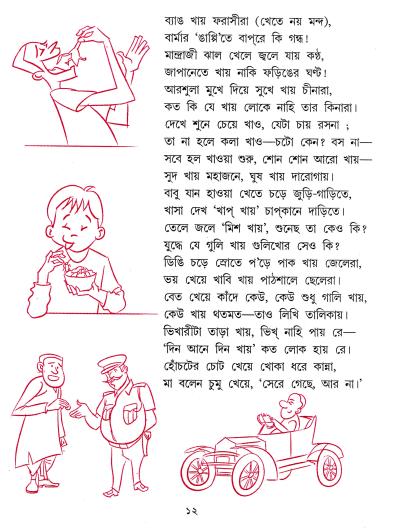 ব্যাঙ খায় ফরাসীরা (খেতে নয় মন্দ),
বার্মার ‘ঙাপ্পি’তে বাপ্‌রে কি গন্ধ!
মান্দ্রাজী ঝাল খেলে জ্বলে যায় কণ্ঠ,
জাপানেতে খায় নাকি ফড়িঙের ঘণ্ট!
আরশুলা মুখে দিয়ে সুখে খায় চীনারা,
কত কি যে খায় লোকে নাহি তার কিনারা।
দেখে শুনে চেয়ে খাও, যেটা চায় রসনা ;
তা না হলে কলা খাও—চটো কেন? বস না—
সবে হল খাওয়া শুরু, শোন শোন আরো খায়—
সুদ খায় মহাজনে, ঘুষ খায় দারোগায়।
বাবু যান হাওয়া খেতে চড়ে জুড়ি-গাড়িতে,
খাসা দেখ ‘খাপ্ খায়’ চাপ্‌কানে দাড়িতে।
তেলে জলে ‘মিশ খায়’, শুনেছ তা কেও কি?
যুদ্ধে যে গুলি খায় গুলিখোর সেও কি?
ডিঙি চড়ে স্রোতে প’ড়ে পাক খায় জেলেরা,
ভয় খেয়ে খাবি খায় পাঠশালে ছেলেরা।
বেত খেয়ে কাঁদে কেউ, কেউ শুধু গালি খায়,
কেউ খায় থতমত—তাও লিখি তালিকায়।
ভিখারীটা তাড়া খায়, ভিখ্ নাহি পায় রে—
‘দিন আনে দিন খায়’ কত লোক হায় রে।
হোঁচটের চোট খেয়ে খোকা ধরে কান্না,
মা বলেন চুমু খেয়ে, ‘সেরে গেছে, আর না।’
১২